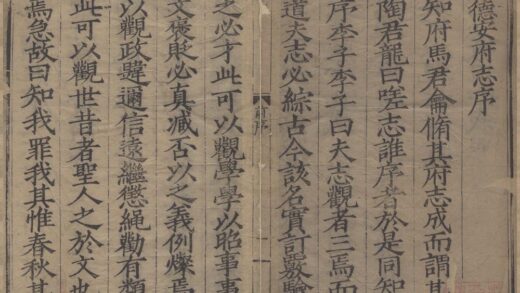 德安府志序
知府馬君龠脩其府志成而謂其
陶君龍曰嗟志誰序者於是同知
序李子李子曰夫志觀者三焉而
道夫志必綜古今該名實訂覈驗
前序 一
之必才此可以觀學學以昭事事
文褒貶必真臧否以之義例燦焉
以觀政韙邇信遠繼懲繩勸有類
此可以觀世昔者聖人之於文也
焉急故曰知我罪我其惟春秋其